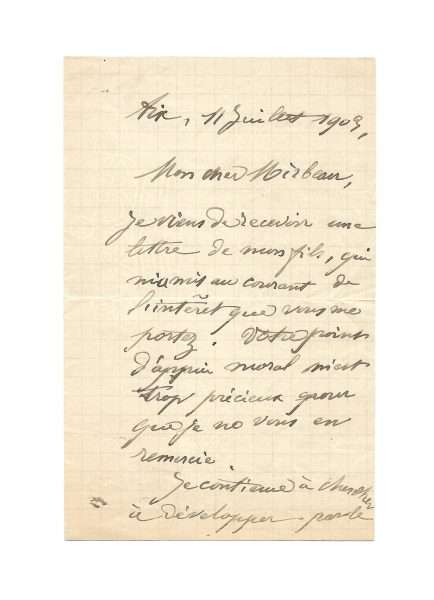 Aix, 11 Juillet 1903,
Mon cher Mirbeau,
Je viens de recevoir une
lettre de mon fils, qui
m'a mis au courant de
l'intérêt que vous me
portez. Votre point
d'appui moral m'est
trop précieux pour
que je ne vous en
remercie.
Je continue à chercher
à développer par le